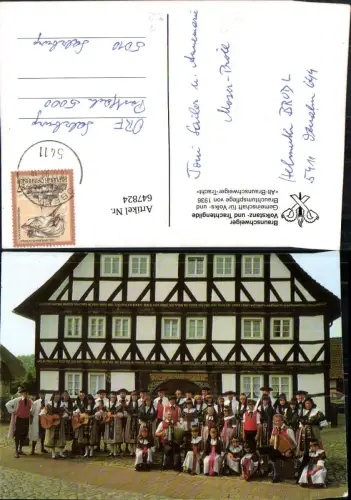 Braunschweiger
Volkstanz- und Trachtengilde
Gemeinschaft für Volks- und
Brauchtumspflege von 1936
-Alt-Braunschweiger-Tracht-
Toni Sailer u. Annemarie
Moser-Pröll
Helmuth BRÜDL
5411 Oberalm 644
Artikel Nr.
647824
ORF Salzburg
Postfach 5000
5010 Salzburg
5411